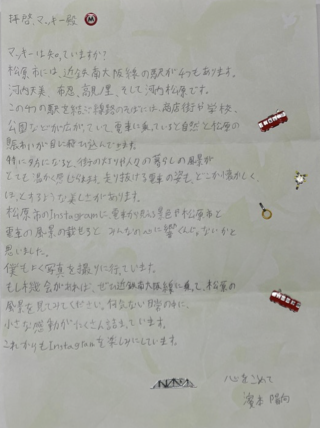 拝啓、マッキー殿
マッキーは知っていますか?
松原市には、近鉄南大阪線の駅が4つもあります。
河内天美、布忍、高見ノ里、そして河内松原です。
この4つの駅を結ぶ線路のそばには、商店街や学校、
公園などが広がっていて、電車に乗っていると自然と松原の
賑わいが目に飛び込んできます。
特に夕方になると、夕焼けの光が人々の暮らしの風景が
とても温かく感じられます。走り抜ける電車の姿も、どこか懐かしく、
はっとするような美しさがあります。
松原市のInstagramに、電車から見える景色や松原市と
電車の風景の載せると、みんなの心に響くんじゃないかと
思いました。
僕もよく写真を撮りに行っています。
もし機会があれば、ぜひ近鉄南大阪線に乗って、松原の
風景を見てみてください。何気ない日常の中に、
小さな感動がたくさん詰まっています。
これからもInstagramを楽しみにしています。
心をこめて
陽向